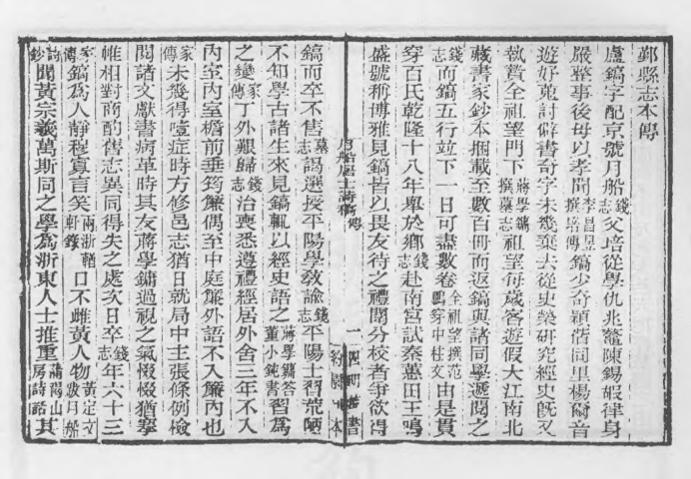 鄞縣志本傳
盧鎬字配京號月船錢志父培從學仇兆鰲陳錫嘏律身
嚴整事後母以孝聞李昌昱撰培傳鎬少奇穎偕同里楊爾音
遊好蒐討僻書奇字未幾棄去從史榮研究經史旣又
執贄全祖望門下蔣學鏞撰墓志祖望每歲客遊假大江南北
藏書家鈔本捆載至數百冊而返鎬與諸同學遞閱之
錢志而鎬五行竝下一日可盡數卷全祖望撰范鵬穿中柱文由是貫
穿百氏乾隆十八年舉於鄉錢志赴南宮試秦蕙田王鳴
盛號稱博雅見鎬皆以畏友待之禮闈分校者爭欲得
月船居士詩稿 傳 一 四明叢書 約園刊本
鎬而卒不售墓志謁選授平陽學敎諭錢志平陽士習荒陋
不知學古諸生來見鎬輒以經史語之蔣學鏞答董小鈍書習爲
之變家傳丁外艱歸錢志治喪悉遵禮經居外舍三年不入
內室內室檐前垂筠簾偶至中庭簾外語不入簾內也
家傳未幾得噎症時方修邑志猶日就局中主張條例檢
閱諸文獻書病革時其友蔣學鏞過視之氣惙惙猶搴
帷相對商酌舊志異同得失之處次日卒錢志年六十三
家傳鎬爲人靜穆寡言笑兩浙輶軒錄口不雌黃人物黃定文
詩鈔聞黃宗羲萬斯同之學爲浙東人士推重蒲褐山房詩話其